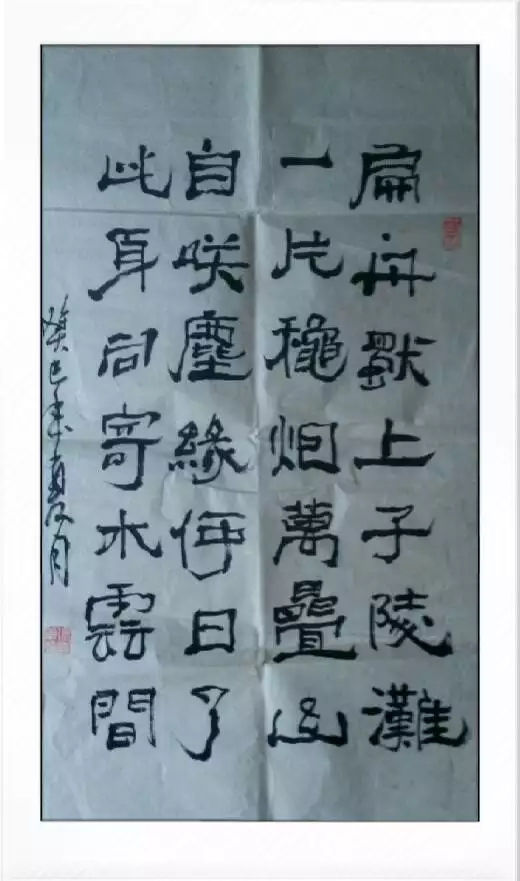 扁舟猷上子陵灘
一片穐烟萬疊山
自咲塵緣何日了
此身向寄水雲間
癸巳年夏月